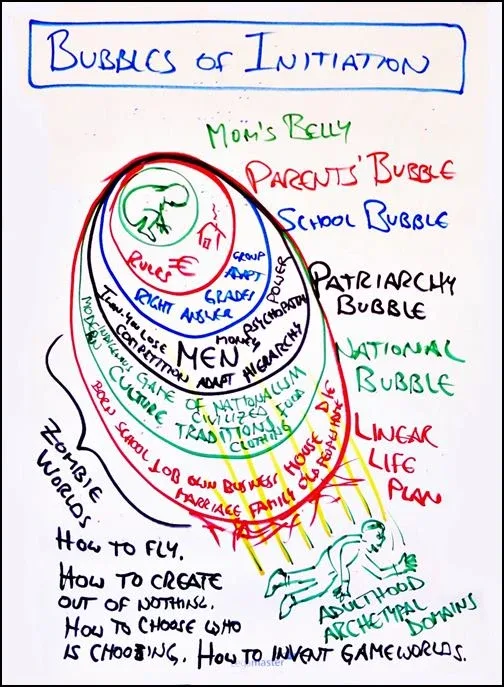 BUBBLES OF INITIATION
MOM'S BELLY
PARENTS' BUBBLE
SCHOOL BUBBLE
PATRIARCHY
BUBBLE
NATIONAL
BUBBLE
LINEAR
LIFE
PLAN
RULES €
GROUP
ADAPT
GRADES
RIGHT ANSWER
I WIN-YOU LOSE
COMPETITION
MEN
ADAPT
MONEY
HIERARCHY
PSYCHOPATHY
POWER
MODERN
INDIGENOUS
GAME OF NATIONALISM
CULTURE
CIVILIZED
TRADITIONS
FOOD
CLOTHING
BORN SCHOOL JOB OWN BUSINESS HOUSE DIE
MARRIAGE FAMILY OLD PEOPLE HOME
ZOMBIE
WORLDS
ADULTHOOD
ARCHETYPAL
DOMAINS
HOW TO FLY.
HOW TO CREATE
OUT OF NOTHING.
HOW TO CHOOSE WHO
IS CHOOSING. HOW TO INVENT GAMEWORLDS.
Legamaster